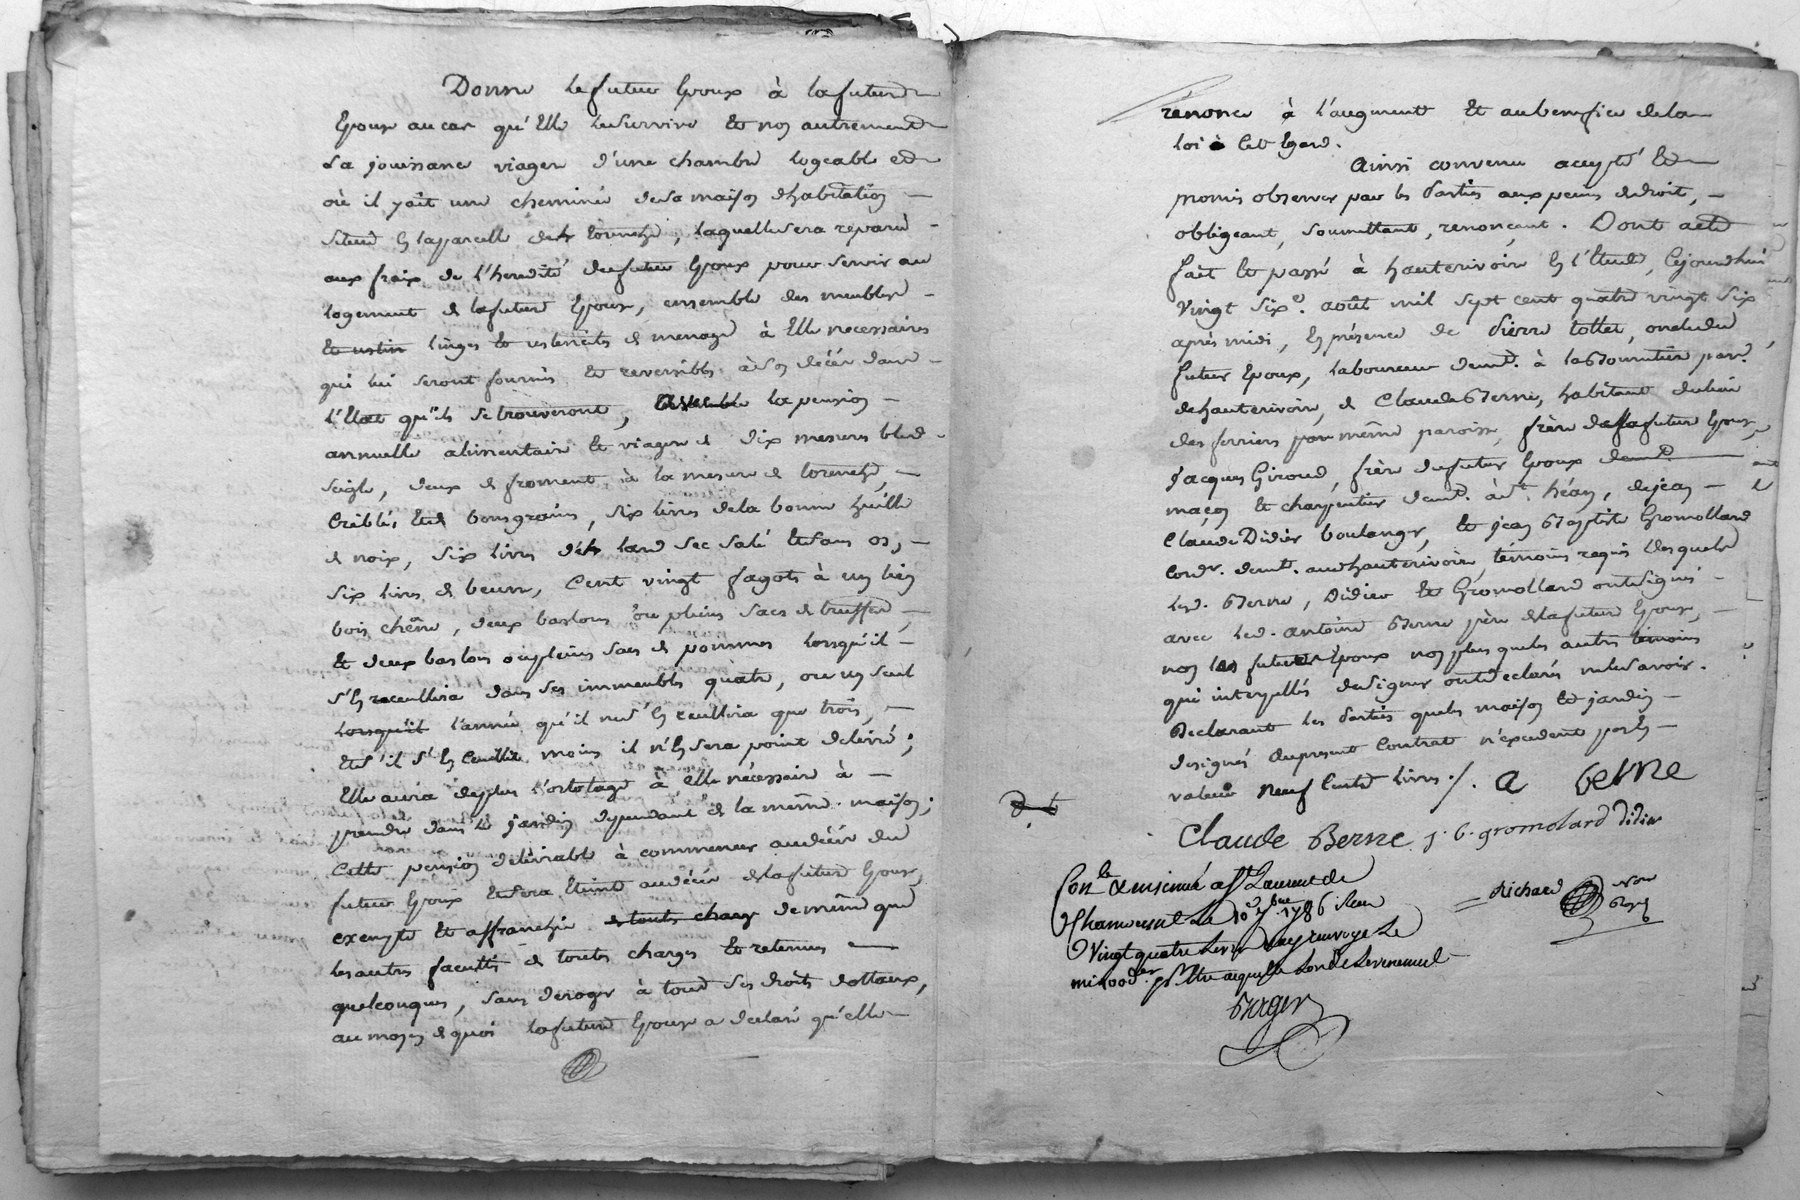 Donne le futur Epoux à la future
Epouse au cas qu'Elle le survive Et non autrement
La jouissance viagere d'une chambre logeable et
où il y ait une cheminée de sa maison d'habitation
située En la parcelle de, laquelle sera reparée
aux fraix de l'heredité du futur Epoux pour servir au
logement de la future Epouse, ensemble des meubles
Et ustin linges Et ustencils de menage à Elle necessaires
qui lui seront fournis Et reversibles à son décès dans
l'Etat qu'ils se trouveront, la pension
annuelle alimentaire Et viagere de dix mesures bled
seigle, deux de froment à la mesure de,
Criblés Et de bons grains, six livres de la bonne huille
de noix, six livres de lard sec salé Et sans os,
six livres de beurre, Cent vingt fagots à un lien
bois chêne, deux ou pleins sacs de truffes,
Et deux ou pleins sacs de pommes lorsqu'il
s'En receullira dans ses immeubles quatre, ou un seul
lorsqu'il l'année qu'il ne s'En ceullira que trois,
Et s'il s'En Ceullit moins il n'En sera point delivré;
Elle aura deplus l'ortolage à elle nécessaire à
prendre dans le jardin dependant de la même maison;
Cette pension delivrable à commencer au décès du
futur Epoux Et sera Eteinte au décès de la future Epouse,
exempte Et affranchie de toute charge de même que
les autres facultés de toutes charges Et retenues
quelconques, sans deroger à tous ses droits dottaux,
au moyen de quoi la future Epouse a declaré qu'elle
renonce à l'augment Et au benefice de la
loi à Cet Egard.
Ainsi convenu accepté Et
promis observer par les Parties aux peines de droit,
obligeant, soumettant, renonçant. Dont acte
fait Et passé à hauterivoire En l'Etude, Cejourdhui
vingt sixe. août mil sept cent quatre vingt six
après midi, En présence de Pierre tollet, oncle du
futur Epoux, laboureur demt. à la Bournetier parr.
de hauterivoire, de Claude Berne, habitant du lieu
des ferriers par même paroisse, frère de la future Epouse,
Jacques Giroud, frère du futur Epoux demt.
maçon Et charpentier demt. à st. héan, de jean
Claude Didier boulanger, Et jean Baptiste Gromollard
cordr. demt. aud hauterivoire témoins requis desquels
led. Berne, Didier Et Gromollard ont signé
avec led. antoine Berne père de la future Epouse,
non les futurs Epoux non plus que les autres témoins
qui interpellés de signer ont declaré ne le savoir.
Declarant les Parties que les maison Et jardin
designés au present Contrat n'excedent pas En
valeur neuf Cents livres ./. a berne
Claude Berne j. b. gromolard didier
Conle. & insinué a st Laurent de
Chamousset Le 10e. 7bre. 1786 Reçu
Vingt quatre livres
Richard Nore
Royal